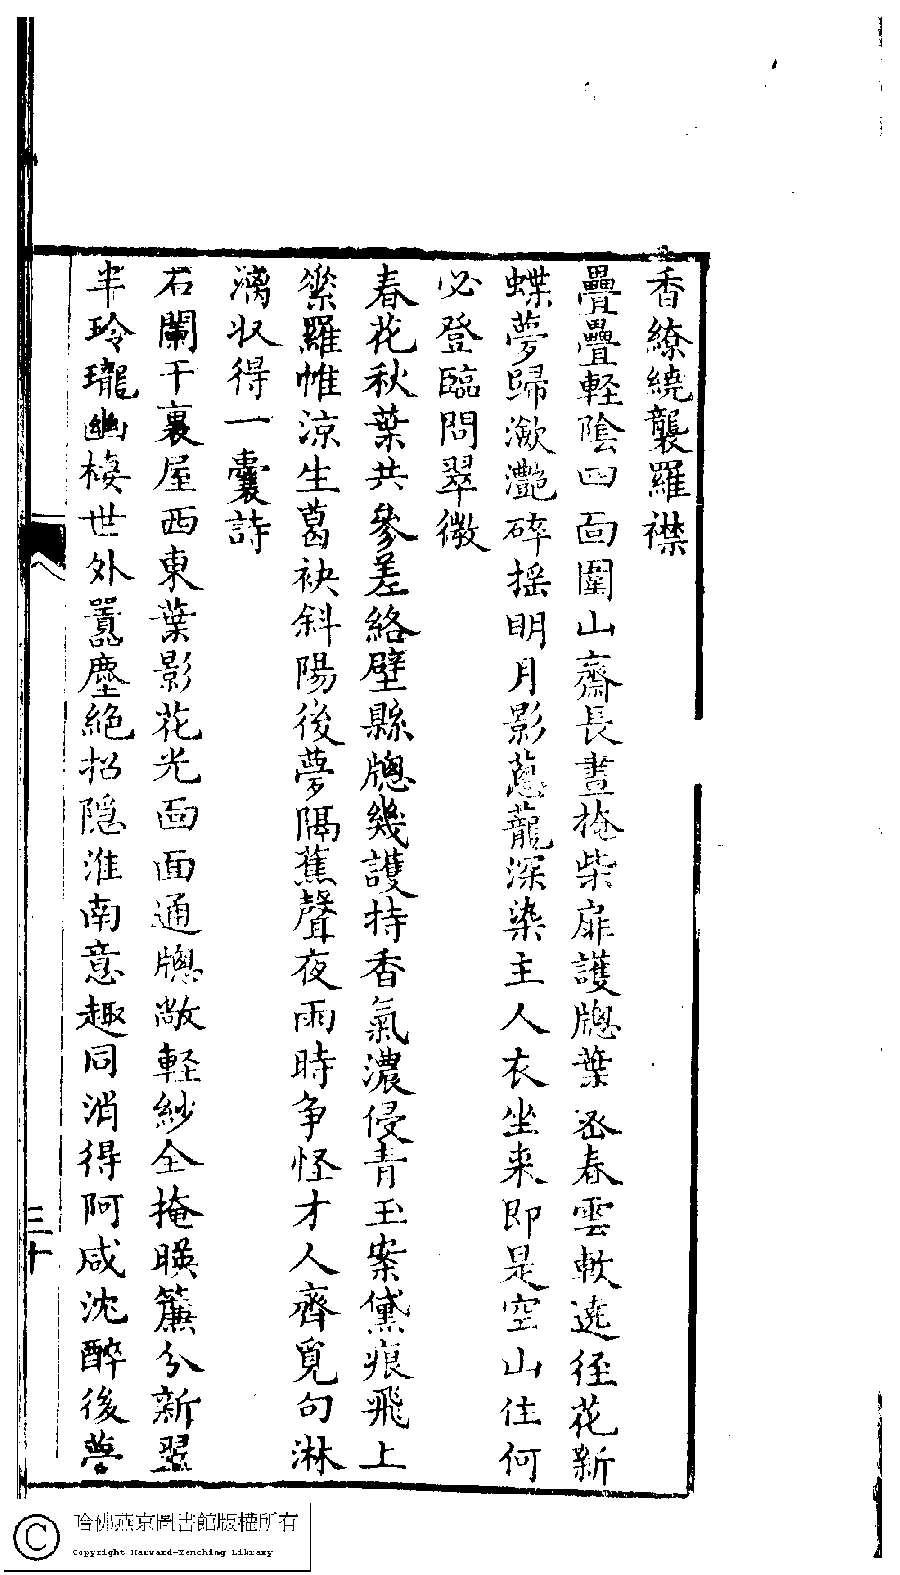 香繚繞襲羅襟
疊疊輕陰四面圍山齋長晝掩柴扉護牕葉密春雲軟遶徑花新
蝶夢歸瀲灧碎搖明月影蔥蘢深染主人衣坐來即是空山住何
必登臨問翠微
春花秋葉共參差絡壁縣牕幾護持香氣濃侵青玉案黛痕飛上
紫羅帷涼生葛袂斜陽後夢隔蕉聲夜雨時爭怪才人齊覓句淋
漓収得一囊詩
石闌干裏屋西東葉影花光面面通牕敞輕紗全掩暎簾分新翠
半玲瓏幽棲世外囂塵絕招隱淮南意趣同消得阿咸沈醉後夢
三十
哈佛燕京圖書館版權所有
Copyright Harvard-Yenching Library